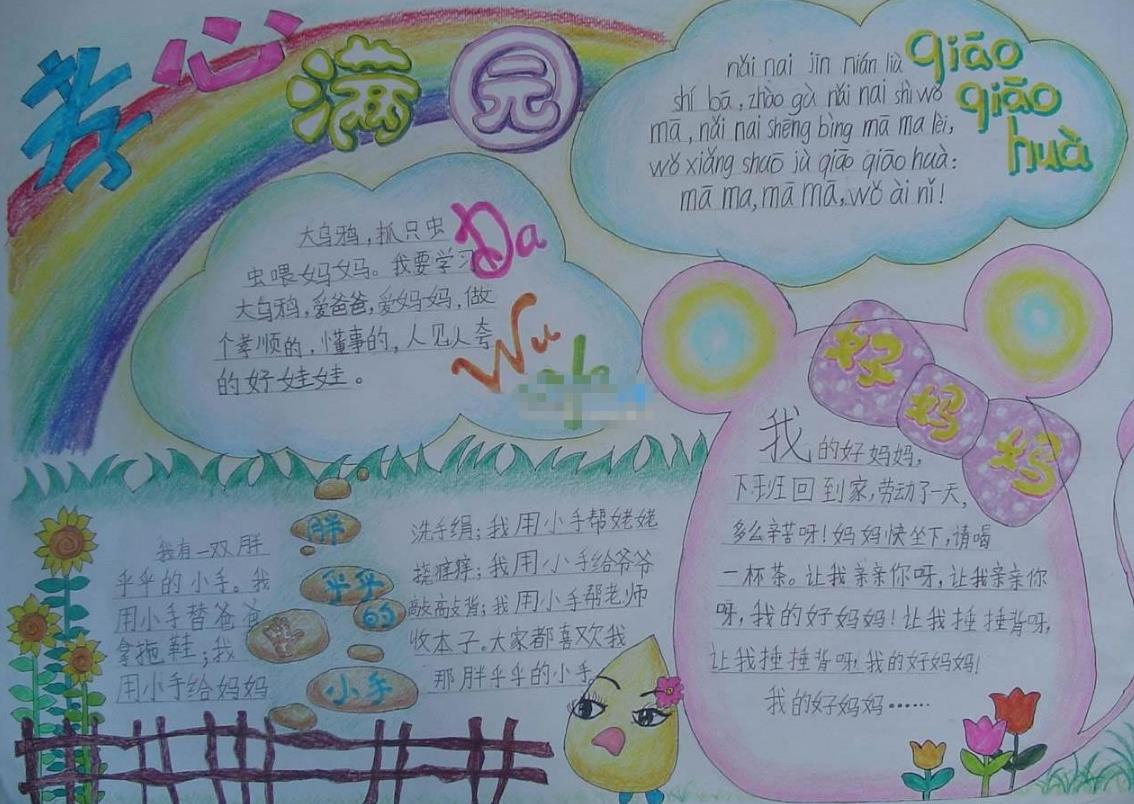 孝心满园
qiāo
qiāo
huà
nǎi nai jīn nián liù
shí bā, zhào gù nǎi nai shì wǒ
mā, nǎi nai shēng bìng mā ma lèi,
wǒ xiǎng shuō jù qiāo qiāo huà:
mā ma, mā mā, wǒ ài nǐ!
Da
Wu
大乌鸦，抓只虫
虫喂妈妈。我要学习
大乌鸦，爱爸爸，爱妈妈，做
个孝顺的，懂事的，人见人夸
的好娃娃。
妈妈
我的好妈妈，
下班回到家，劳动了一天，
多么辛苦呀！妈妈快坐下，请喝
一杯茶。让我亲亲你呀，让我亲亲你
呀，我的好妈妈！让我捶捶背呀，
让我捶捶背呀，我的好妈妈！
我的好妈妈……
胖
乎乎
的
小手
我有一双胖
乎乎的小手。我
用小手替爸爸
拿拖鞋；我
用小手给妈妈
洗手绢；我用小手帮姥姥
挠痒痒；我用小手给爷爷
敲敲背；我用小手帮老师
收本子。大家都喜欢我
那胖乎乎的小手